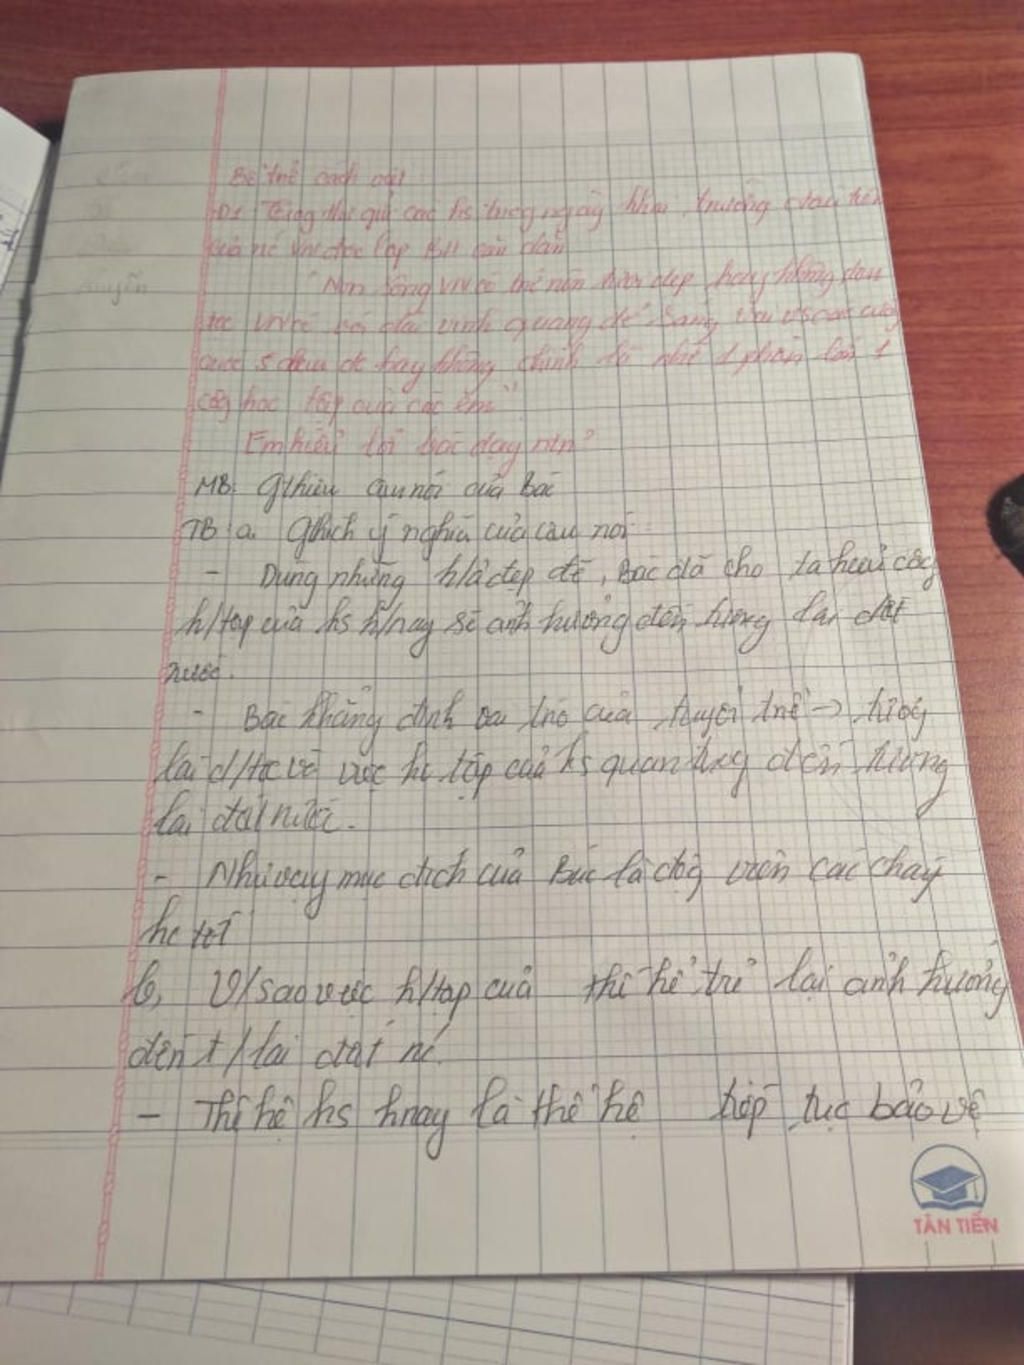 cách
Đ1: Trong thư gửi các hs trong ngày khai trường đầu tiên
của nc VN độc lập BH căn dặn
" Non sông VN có trở nên tươi đẹp hay không dân
tộc VN có đài vinh quang để sánh vai vs các cường
quốc 5 châu đc hay không chính là nhờ 1 phần lớn
công học tập của các em".
Em hiểu lời bác dạy ntn?
MB: Gthiệu câu nói của Bác
TB a. Gthích ý nghĩa của câu nói
- Dùng những h/a đẹp đẽ, Bác đã cho ta hiểu công
h/tập của hs h/nay sẽ ảnh hưởng đến tương lai đất
nước.
- Bác khẳng định vai trò của tuổi trẻ → tương
lai d/tộc về việc hc tập của hs quan trọng đến tương
lai đất nước.
- Như vậy mục đích của Bác là động viên các cháu
hc tốt
b, V/sao việc h/tập của thế hệ trẻ lại ảnh hưởng
đến t/lai đất nc.
- Thế hệ hs hnay là thế hệ tiếp tục bảo vệ
TÂN TIẾN